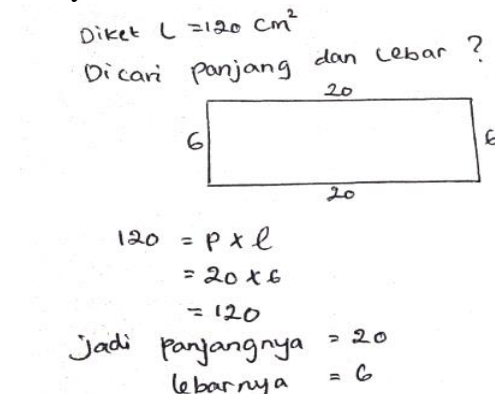 Diket L = 120 cm²
Dicari panjang dan lebar ?
20
6
6
20
120 = p x l
= 20 x 6
= 120
Jadi panjangnya = 20
lebarnya = 6